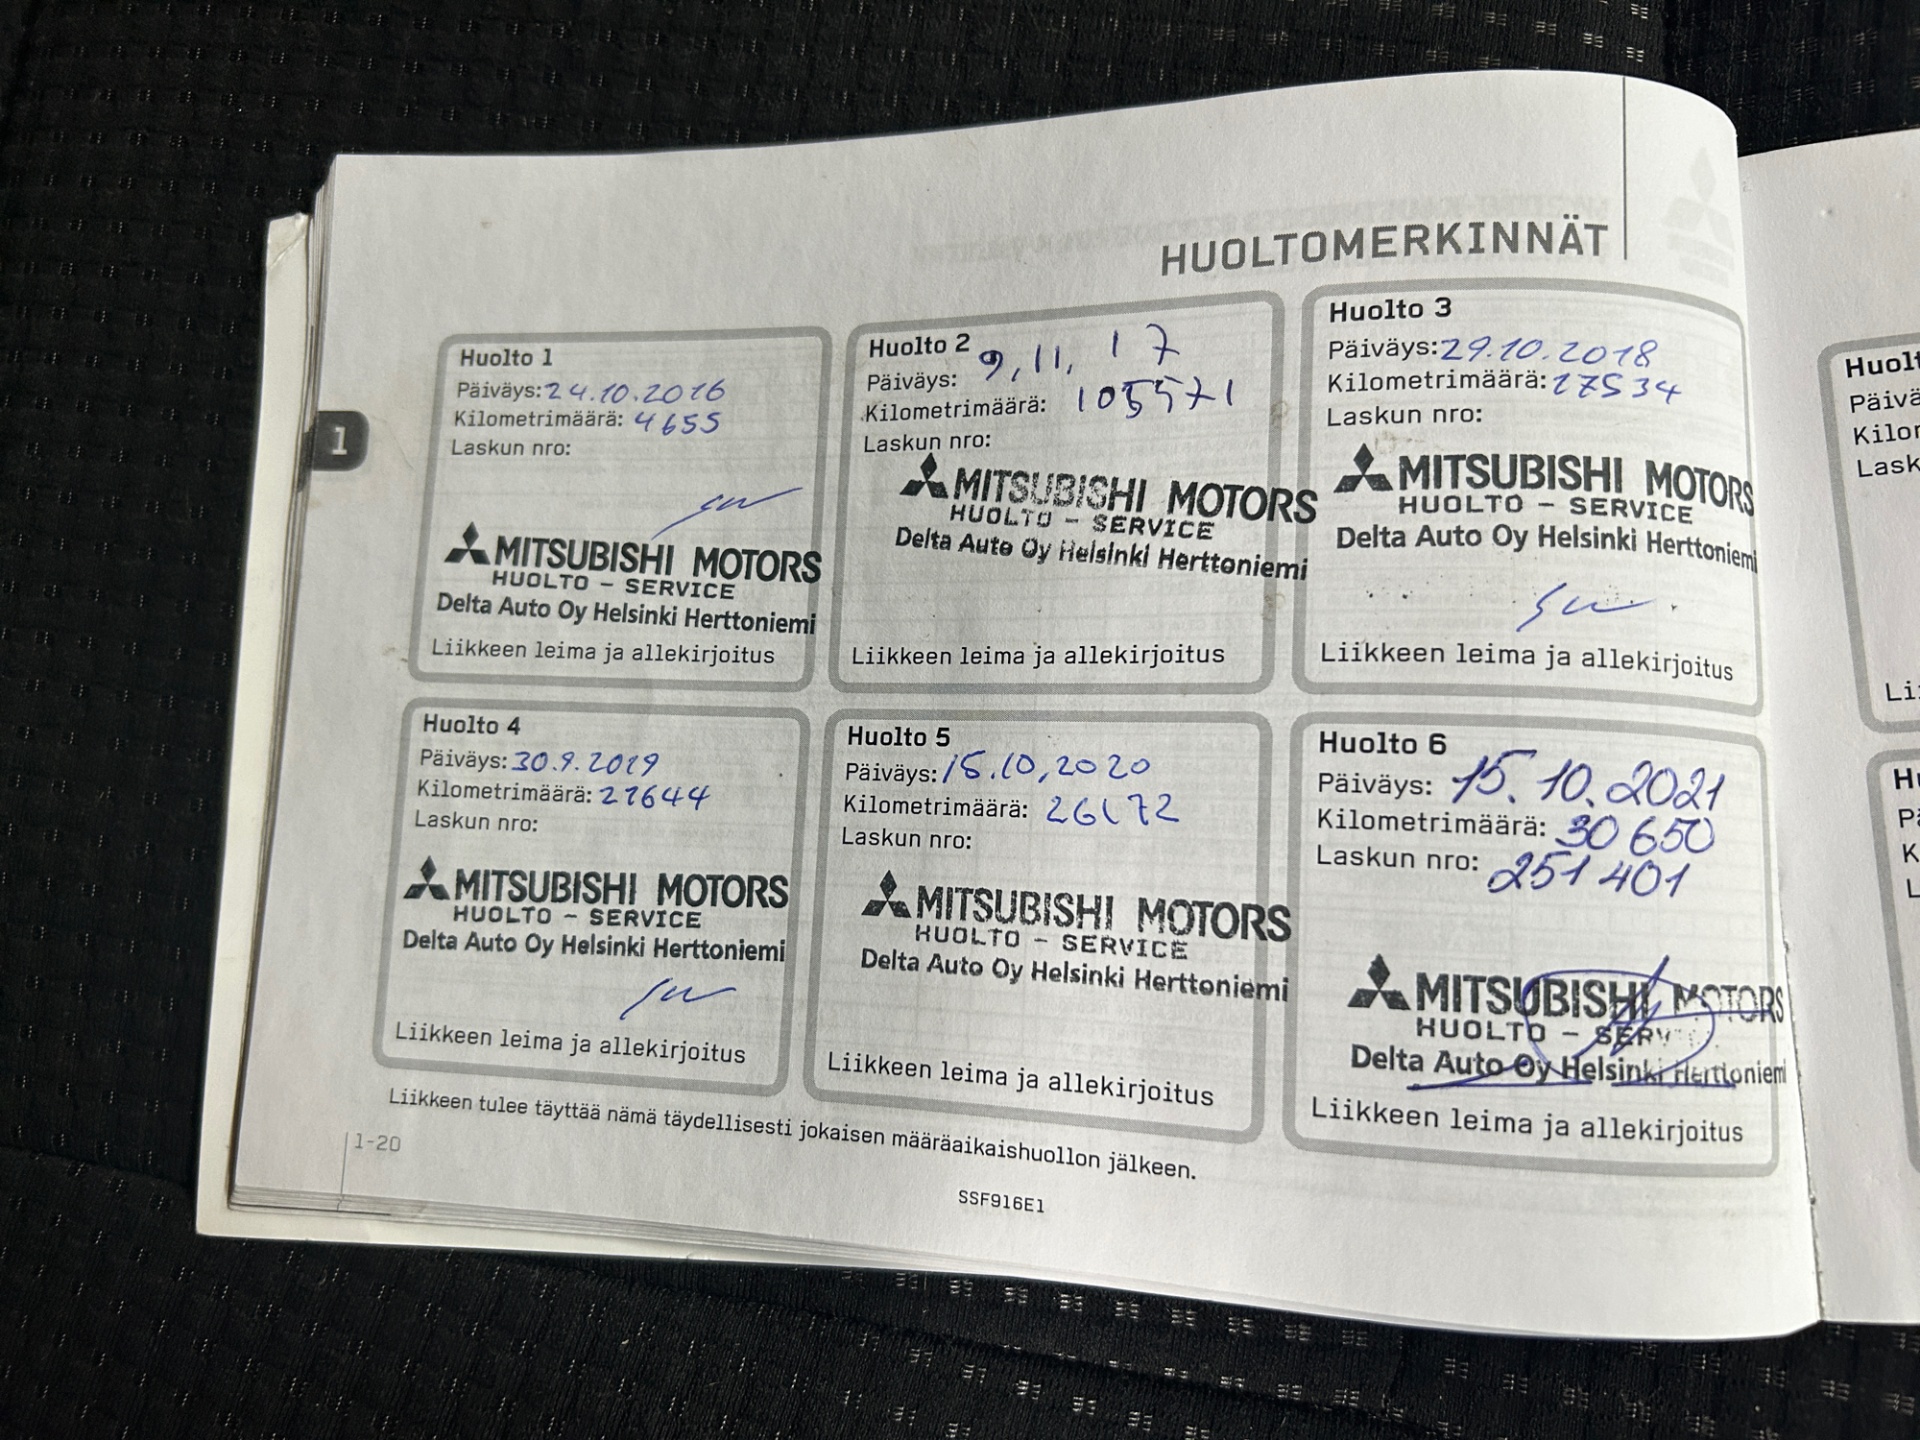 HUOLTOMERKINNÄT
1
Huolto 1
Päiväys: 24.10.2016
Kilometrimäärä: 4655
Laskun nro:
MITSUBISHI MOTORS
HUOLTO - SERVICE
Delta Auto Oy Helsinki Herttoniemi
Liikkeen leima ja allekirjoitus
Huolto 2
Päiväys: 9,11, 17
Kilometrimäärä: 105571
Laskun nro:
MITSUBISHI MOTORS
HUOLTO - SERVICE
Delta Auto Oy Helsinki Herttoniemi
Liikkeen leima ja allekirjoitus
Huolto 3
Päiväys: 29.10.2018
Kilometrimäärä: 17534
Laskun nro:
MITSUBISHI MOTORS
HUOLTO - SERVICE
Delta Auto Oy Helsinki Herttoniemi
Liikkeen leima ja allekirjoitus
Huolto 4
Päiväys: 30.9.2019
Kilometrimäärä: 21644
Laskun nro:
MITSUBISHI MOTORS
HUOLTO - SERVICE
Delta Auto Oy Helsinki Herttoniemi
Liikkeen leima ja allekirjoitus
Huolto 5
Päiväys: 15.10,2020
Kilometrimäärä: 26172
Laskun nro:
MITSUBISHI MOTORS
HUOLTO - SERVICE
Delta Auto Oy Helsinki Herttoniemi
Liikkeen leima ja allekirjoitus
Huolto 6
Päiväys: 15.10.2021
Kilometrimäärä: 30650
Laskun nro: 251401
MITSUBISHI MOTORS
HUOLTO - SERV
Delta Auto Oy Helsinki Herttoniemi
Liikkeen leima ja allekirjoitus
Liikkeen tulee täyttää nämä täydellisesti jokaisen määräaikaishuollon jälkeen.
1-20
SSF916E1